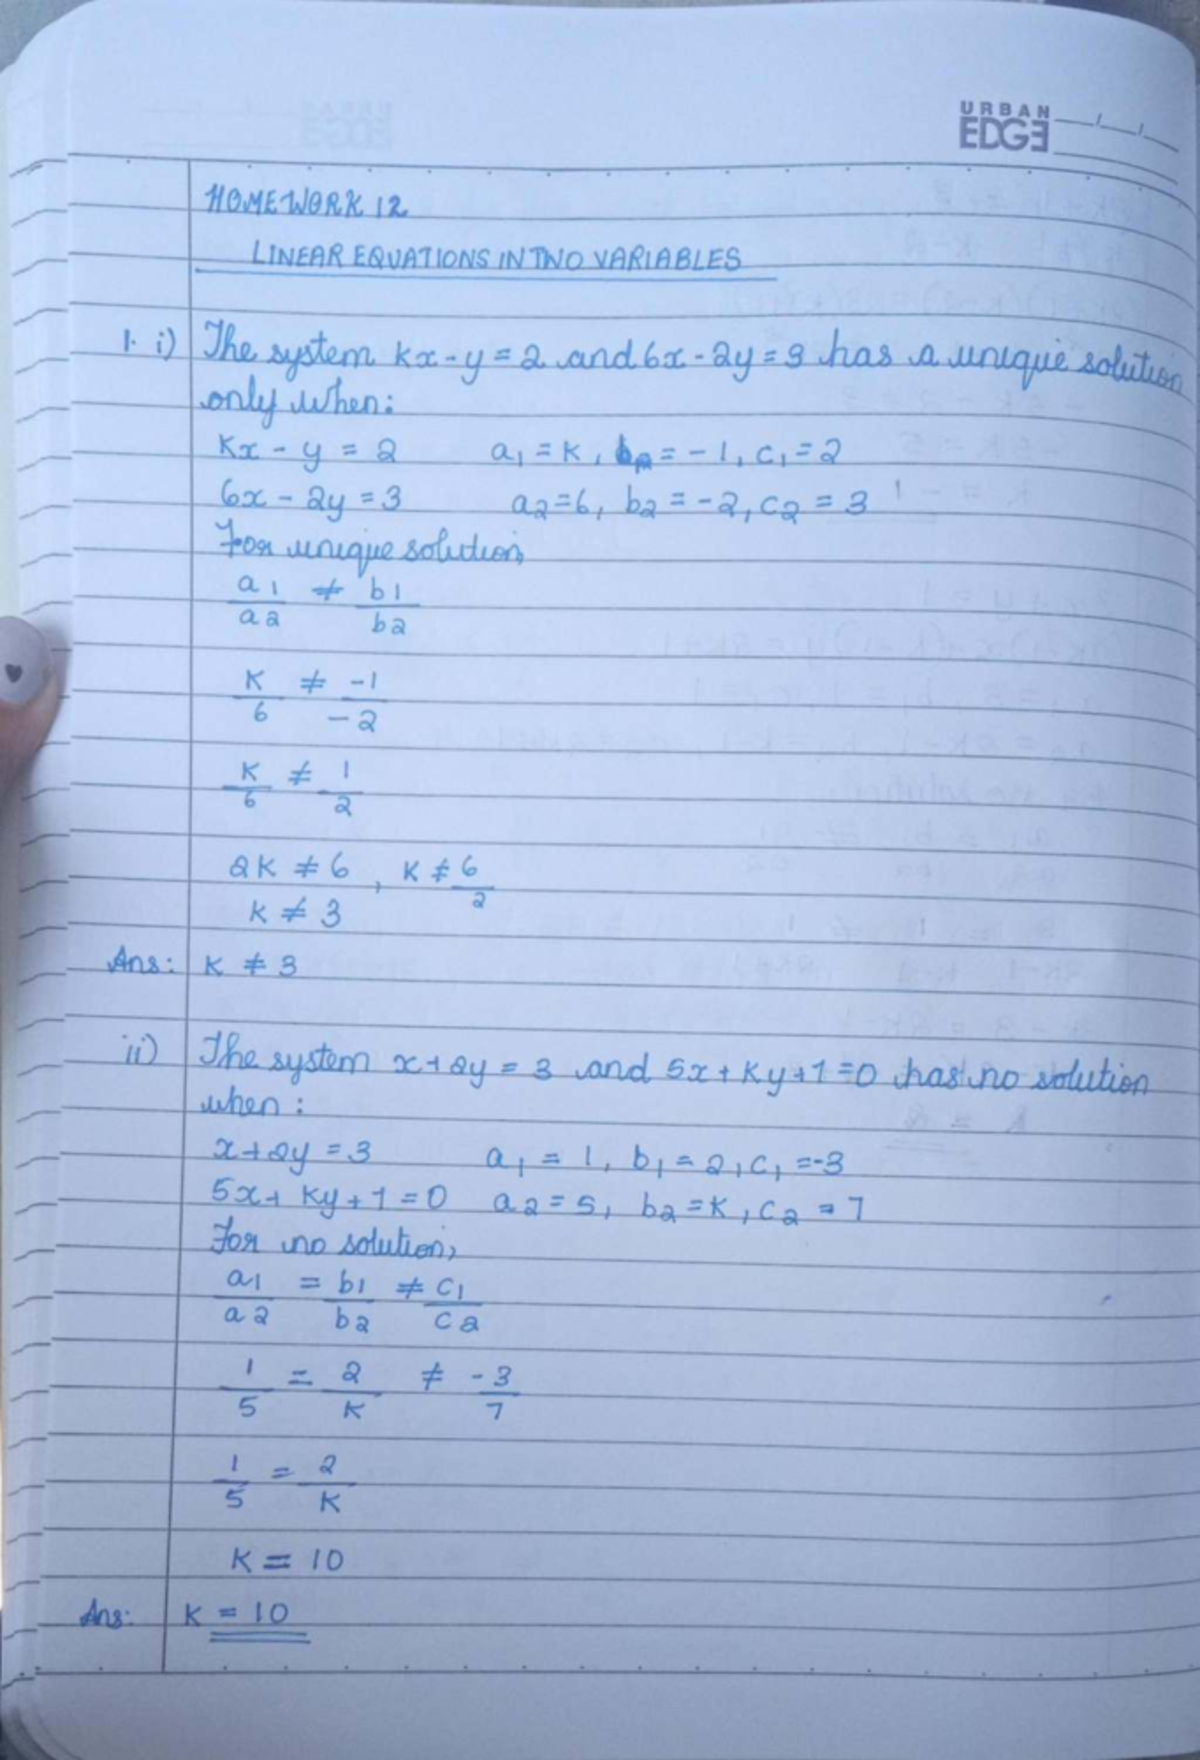 URBAN
EDGE
HOMEWORK 12
LINEAR EQUATIONS IN TWO VARIABLES
1. i) The system kx - y = 2 and 6x - 2y = 3 has a unique solution
only when:
kx - y = 2 a1 = k, = -1, c1 = 2
6x - 2y = 3 a2 = 6, b2 = -2, c2 = 3
For unique solution,
a1/a2 ≠ b1/b2
k/6 ≠ -1/-2
k/6 ≠ 1/2
2k ≠ 6, k ≠ 6/2
k ≠ 3
Ans: k ≠ 3
ii) The system x + 2y = 3 and 5x + ky + 7 = 0 has no solution
when:
x + 2y = 3 a1 = 1, b1 = 2, c1 = -3
5x + ky + 7 = 0 a2 = 5, b2 = k, c2 = 7
For no solution,
a1/a2 = b1/b2 ≠ c1/c2
1/5 = 2/k ≠ -3/7
1/5 = 2/k
k = 10
Ans: k = 10